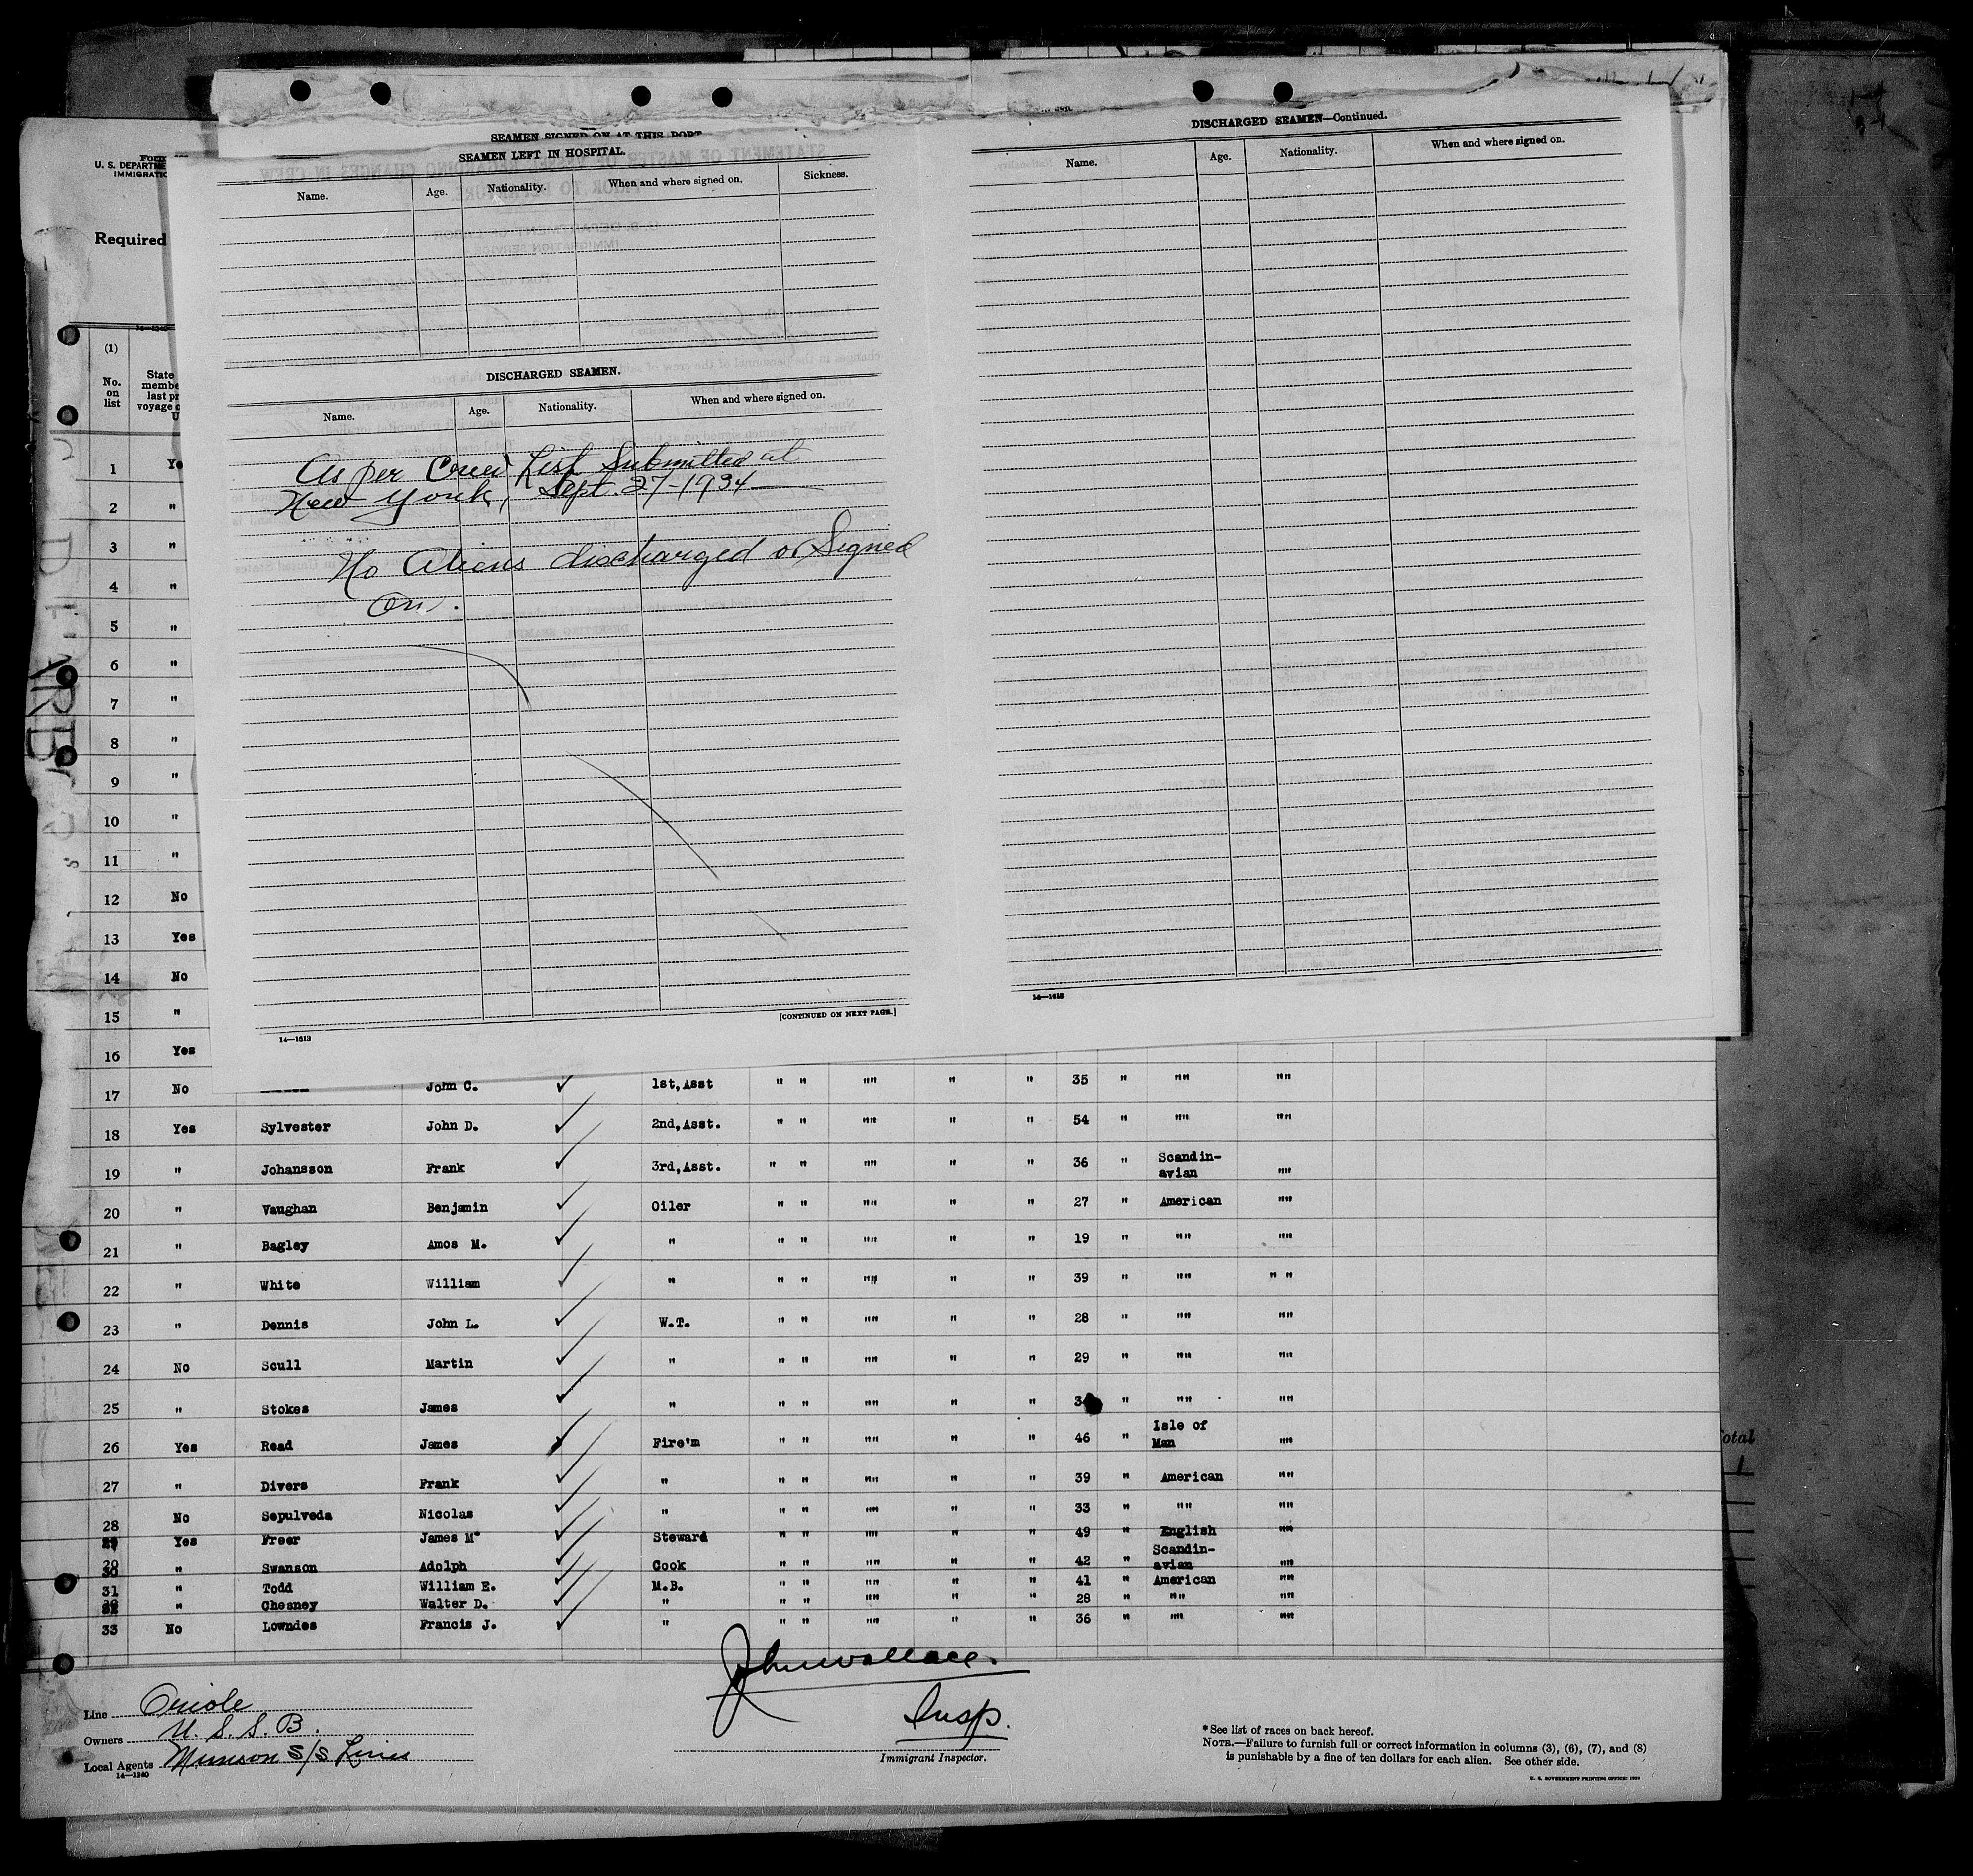 SEAMEN SIGNED ON AT THIS PORT
SEAMEN LEFT IN HOSPITAL.
Name. Age. Nationality. When and where signed on. Sickness.
DISCHARGED SEAMEN.
Name. Age. Nationality. When and where signed on.
As per Crew List Submitted at
New York, Sept. 27-1934
No Aliens discharged or Signed
On.
[CONTINUED ON NEXT PAGE.]
14—1613
DISCHARGED SEAMEN—Continued.
Name. Age. Nationality. When and where signed on.
14—1613
Form
U. S. DEPARTME
IMMIGRATIO
Required
14—1240
(1)
No. on list
State
membe
last pr
voyage
U
1 Ye
2 "
3 "
4 "
5 "
6 "
7 "
8 "
9 "
10 "
11 "
12 No
13 Yes
14 No
15 "
16 Yes
17 No John C. 1st,Asst " " "" " " 35 " "" ""
18 Yes Sylvester John D. 2nd,Asst. " " "" " " 54 " "" ""
19 " Johansson Frank 3rd,Asst. " " "" " " 36 " Scandin-
avian ""
20 " Vaughan Benjamin Oiler " " "" " " 27 " American ""
21 " Bagley Amos M. " " " "" " " 19 " "" ""
22 " White William " " " "" " " 39 " "" " "
23 " Dennis John L. W.T. " " "" " " 28 " "" ""
24 No Scull Martin " " " "" " " 29 " "" ""
25 " Stokes James " " " "" " " 3 " "" ""
26 Yes Read James Fire'm " " "" " " 46 " Isle of
Man ""
27 " Divers Frank " " " "" " " 39 " American ""
28 No Sepulveda Nicolas " " " "" " " 33 " "" ""
29 Yes Freer James M" Steward " " "" " " 49 " English ""
30 " Swanson Adolph Cook " " "" " " 42 " Scandin-
avian ""
31 " Todd William E. M.B. " " "" " " 41 " American ""
32 " Chesney Walter D. " " " "" " " 28 " "" ""
33 No Lowndes Francis J. " " " "" " " 36 " "" ""
Jno Wallace.
Insp.
Immigrant Inspector.
Line Oriole
Owners U. S. S. B.
Local Agents Munson S/S Lines
14—1240
*See list of races on back hereof.
NOTE.—Failure to furnish full or correct information in columns (3), (6), (7), and (8)
is punishable by a fine of ten dollars for each alien. See other side.
U. S. GOVERNMENT PRINTING OFFICE:
otal